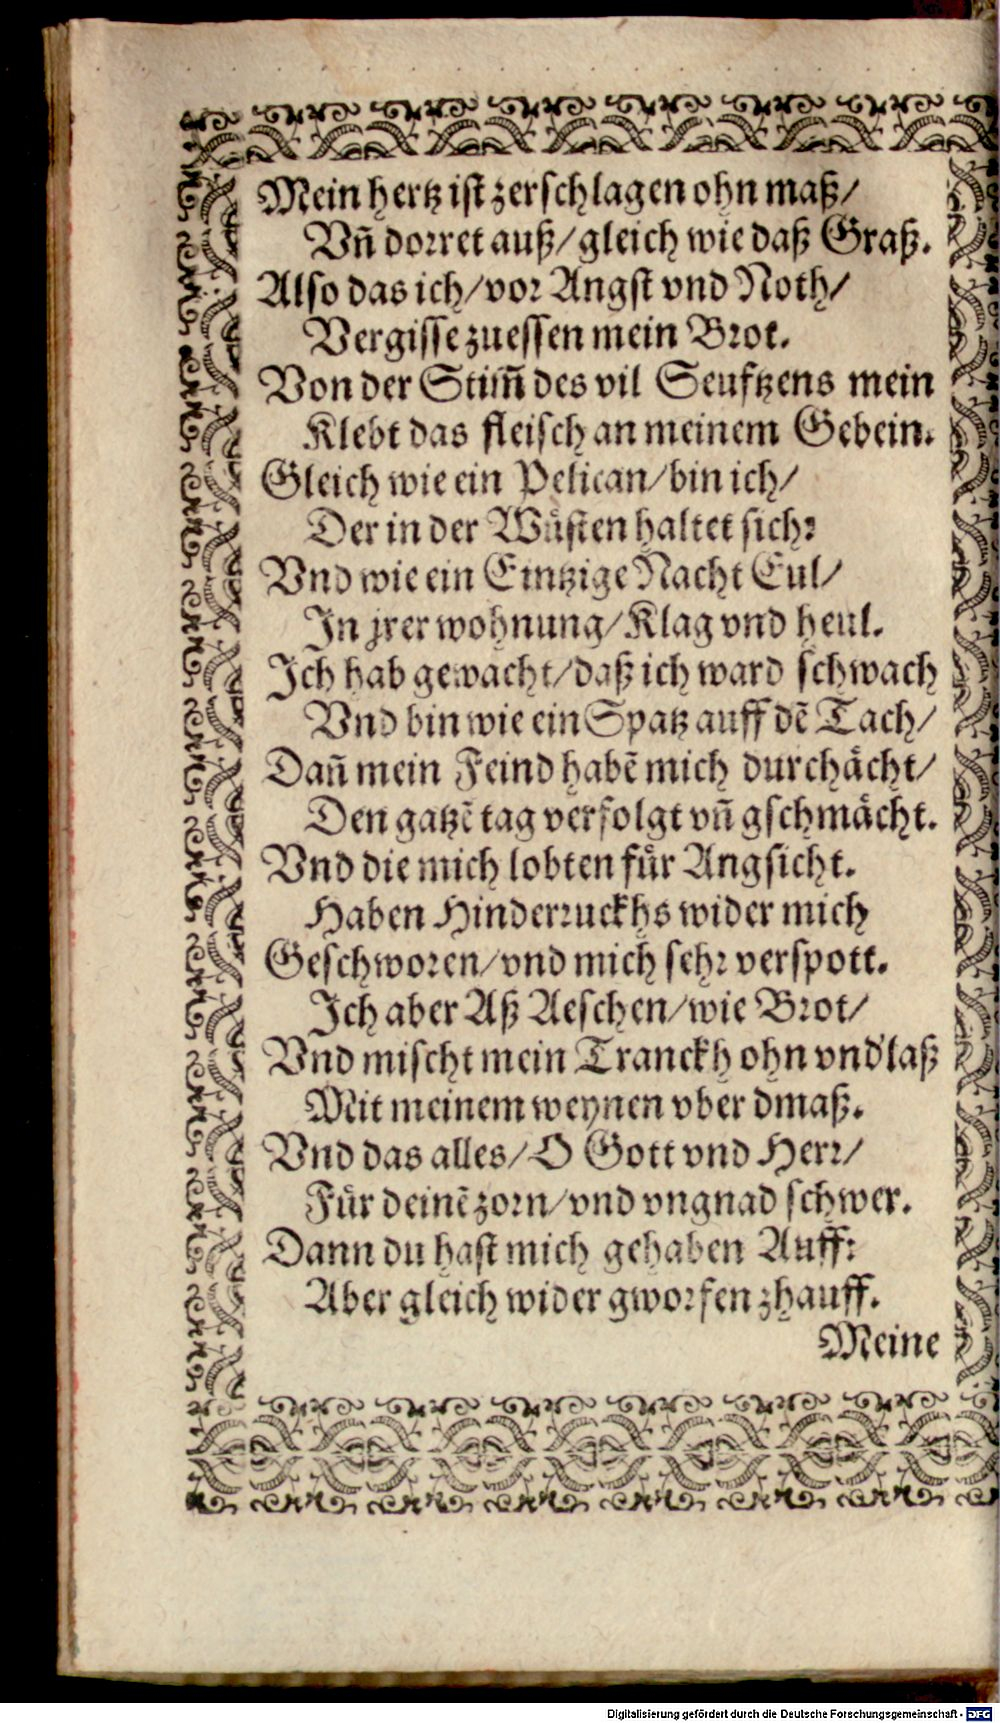 Mein hertz ist zerschlagen ohn maß/
Vñ dorret auß/ gleich wie daß Graß.
Also das ich/ vor Angst vnd Noth/
Vergisse zuessen mein Brot.
Von der Stim̃ des vil Seuftzens mein
Klebt das fleisch an meinem Gebein.
Gleich wie ein Pelican/ bin ich/
Der in der Wuͤsten haltet sich:
Vnd wie ein Eintzige Nacht Eul/
In jrer wohnung/ Klag vnd heul.
Ich hab gewacht/ daß ich ward schwach
Vnd bin wie ein Spatz auff dẽ Tach/
Dañ mein Feind habẽ mich durchaͤcht/
Den gatzẽ tag verfolgt vñ gschmaͤcht.
Vnd die mich lobten fuͤr Angsicht.
Haben Hinderruckhs wider mich
Geschworen/ vnd mich sehr verspott.
Ich aber Aß Aeschen/ wie Brot/
Vnd mischt mein Tranckh ohn vnd'laß
Mit meinem weynen vber dmaß.
Vnd das alles/ O Gott vnd Herr/
Fuͤr deinẽ zorn/ vnd vngnad schwer.
Dann du hast mich gehaben Auff:
Aber gleich wider gworfen zhauff.
Meine
Digitalisierung gefördert durch die Deutsche Forschungsgemeinschaft - DFG